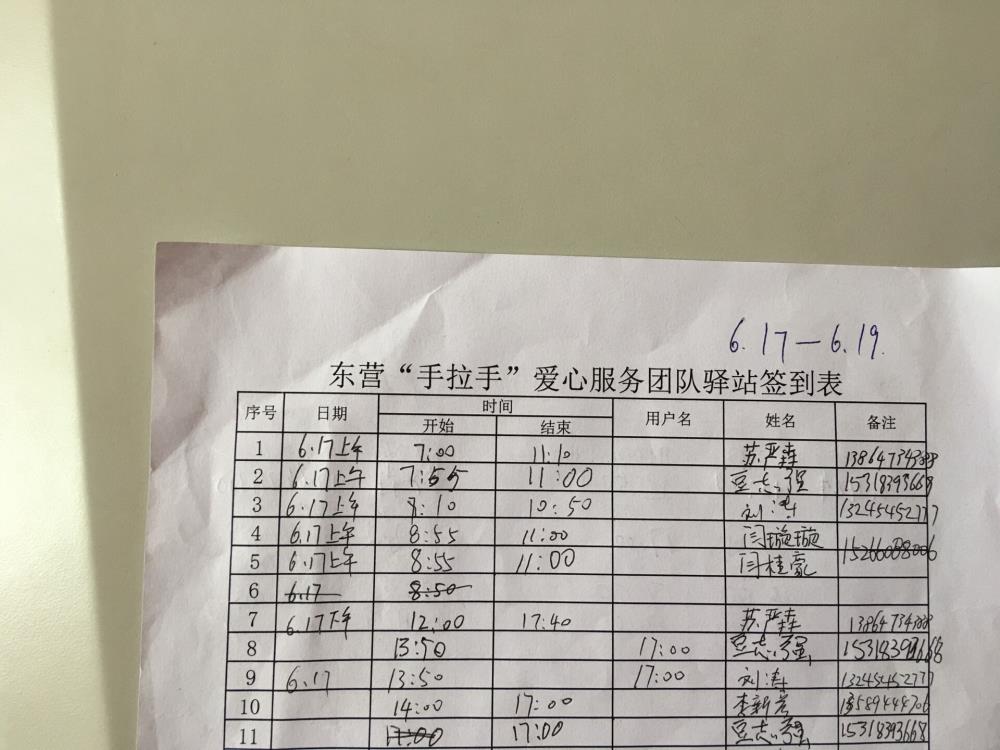 6.17—6.19.
东营“手拉手”爱心服务团队驿站签到表
序号 日期 时间 用户名 姓名 备注
开始 结束
1 6.17上午 7:00 11:10
2 6.17上午 7:55 11:00 豆志强 15318393668
3 6.17上午 8:10 10:50 刘涛 13245452777
4 6.17上午 8:55 11:00 闫璇璇
5 6.17上午 8:55 11:00 闫桂豪 15266008006
6 6.17 8:50
7 6.17下午 12:00 17:40
8 13:50 17:00 豆志强
9 6.17 13:50 17:00 刘涛 13245452777
10 14:00 17:00
11 17:00 17:00 豆志强 15318393668